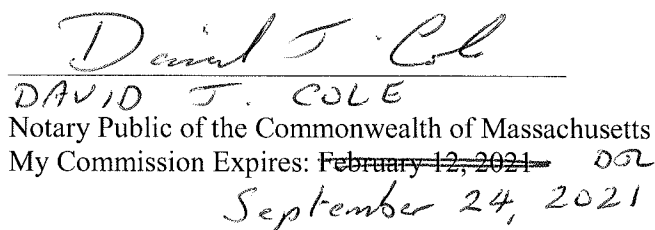 David J. Cole
DAVID J. COLE
Notary Public of the Commonwealth of Massachusetts
My Commission Expires: February 12, 2021
September 24, 2021